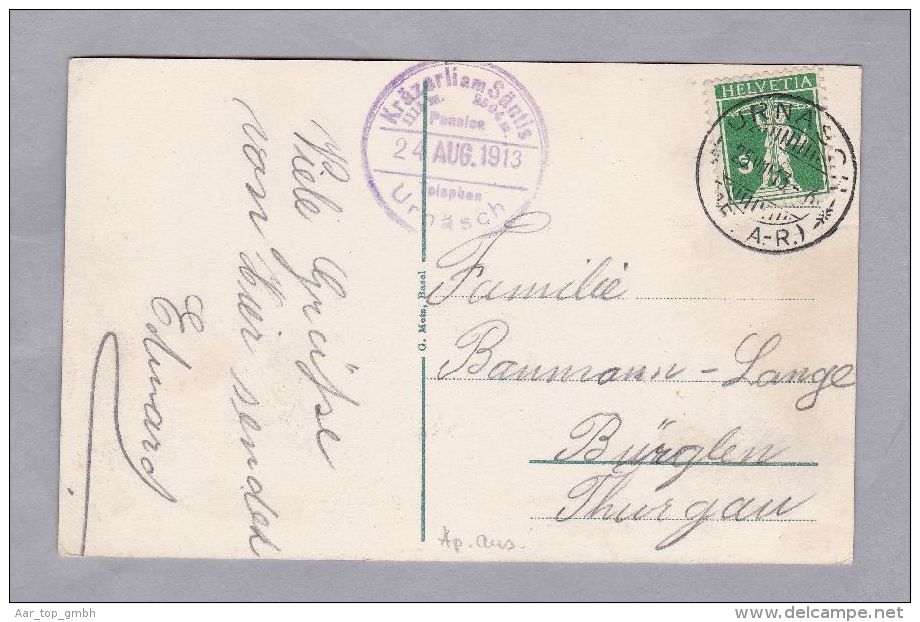 Kräzerli am Säntis
1110 m. 2504 m.
Pension
24 AUG. 1913
Telephon
Urnäsch
HELVETIA
5
URNÄSCH
(A.-R.)
Viele Grüsse
von hier sended
Eduard
G. Metz, Basel
Familie
Baumann-Lange
Bürglen
Thurgau
Ap. aus.
Aar_top_gmbh
delcampe.net